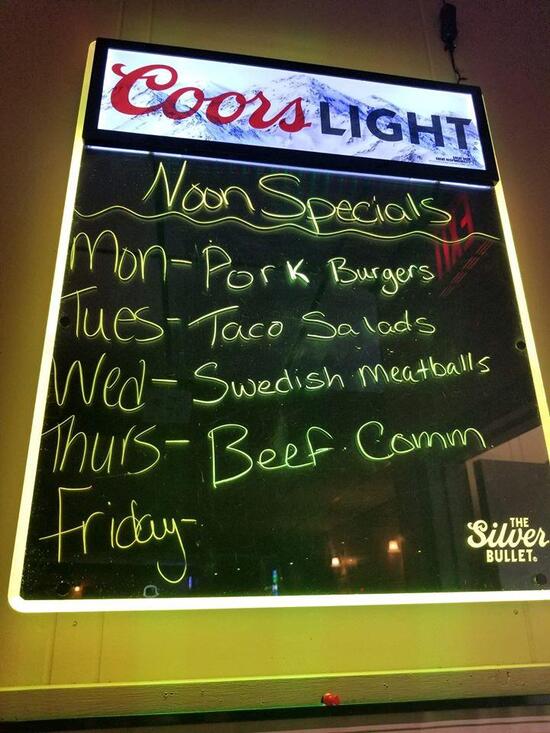 Coors LIGHT
Noon Specials
Mon- Pork Burgers
Tues- Taco Salads
Wed- Swedish Meatballs
Thurs- Beef Comm.
Friday-
THE
Silver
BULLET.